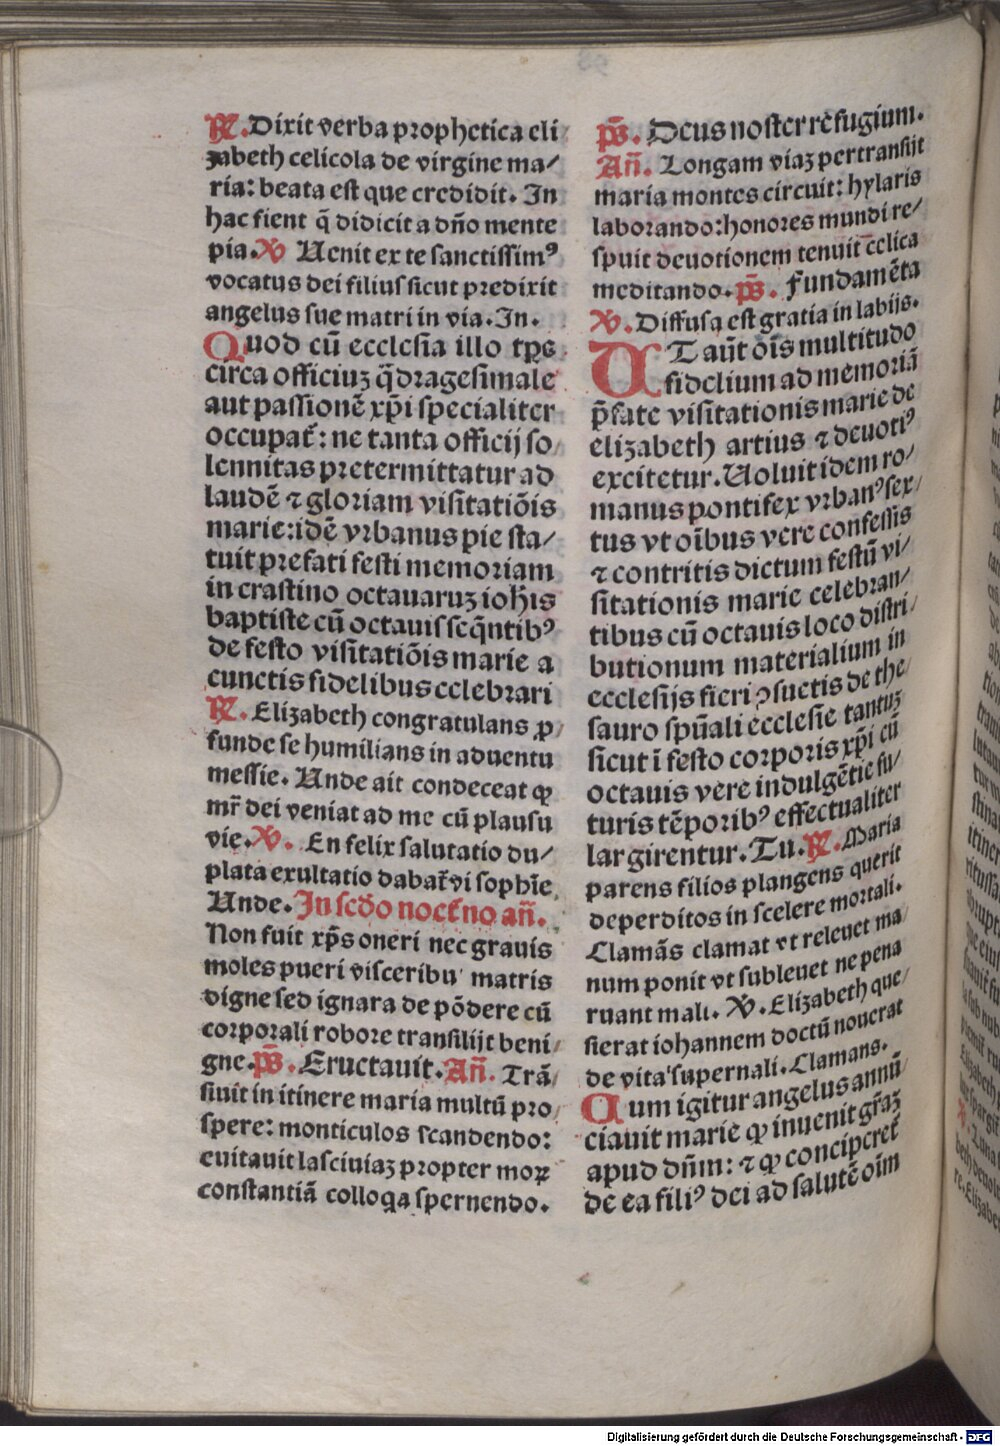 ℟. Dixit verba prophetica eli
zabeth celicola de virgine ma/
ria: beata est que credidit. In
hac fient q̄ didicit a dn̄o mente
pia. ℣ Uenit ex te sanctissimꝰ
vocatus dei filius sicut predixit
angelus sue matri in via. In.
Quod cū ecclesia illo tp̄e
circa officiuꝫ q̄dragesimale
aut passionē xp̄i specialiter
occupat̄: ne tanta officij so/
lennitas pretermittatur ad
laudē ⁊ gloriam visitatiōis
marie: idē vrbanus pie sta/
tuit prefati festi memoriam
in crastino octauaruꝫ ioh̄is
baptiste cū octauis seq̄ntibꝰ
de festo visitatiōis marie a
cunctis fidelibus celebrari
℟. Elizabeth congratulans ꝓ/
funde se humilians in aduentu
messie. Unde ait condeceat ꝙ
mr̄ dei veniat ad me cū plausu
vie. ℣. En felix salutatio du/
plata exultatio dabat̄ vi sophīe
Unde. In scd̄o noct̄no an̄.
Non fuit xp̄s oneri nec grauis
moles pueri visceribu' matris
digne sed ignara de pōdere cū
corporali robore transilijt beni/
gne. ps̄. Eructauit. An̄. Trā/
siuit in itinere maria multū pro/
spere: monticulos scandendo:
euitauit lasciuiaꝫ propter moꝝ
constantiā colloqa spernendo.
ps̄. Deus noster refugium.
An̄. Longam viaꝫ pertransijt
maria montes circuit: hylaris
laborando: honores mundi re/
spuit deuotionem tenuit celica
meditando. ps̄. Fundamēta
℣. Diffusa est gratia in labijs.
UT aūt oīs multitudo
fidelium ad memoriā
p̄fate visitationis marie de
elizabeth artius ⁊ deuotiꝰ
excitetur. Uoluit idem ro/
manus pontifex vrbanꝰ sex/
tus vt oībus vere confessis
⁊ contritis dictum festū vi/
sitationis marie celebran/
tibus cū octauis loco distri/
butionum materialium in
ecclesijs fieri ꝯsuetis de the/
sauro spūali ecclesie tantuꝫ
sicut ī festo corporis xp̄i cū
octauis vere indulgētie fu/
turis tēporibꝰ effectualiter
largirentur. Tu. ℟. Maria
parens filios plangens querit
deperditos in scelere mortali.
Clamās clamat vt releuet ma/
num ponit vt subleuet ne pena
ruant mali. ℣. Elizabeth que/
sierat iohannem doctū nouerat
de vita supernali. Clamans.
Cum igitur angelus annū/
ciauit marie ꝙ inuenit gr̄aꝫ
apud dn̄m: ⁊ ꝙ conciperet̄
de ea filiꝰ dei ad salutē oīm
Digitalisierung gefördert durch die Deutsche Forschungsgemeinschaft - DFG